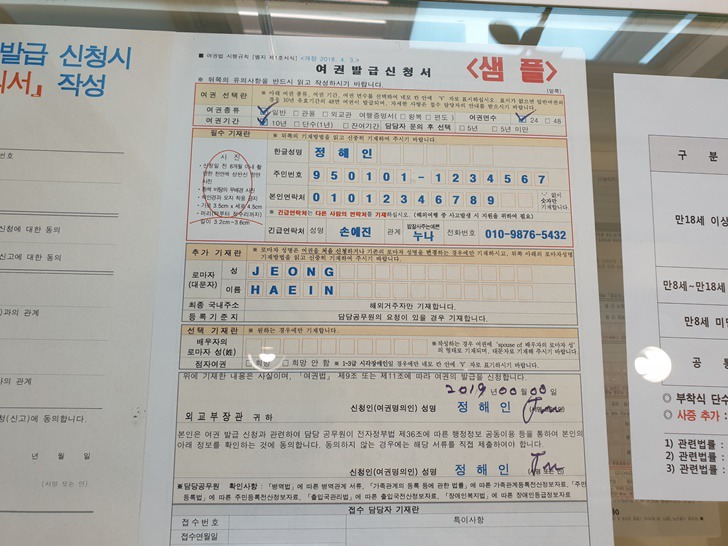 발급 신청시
작성
번호
신청에 대한 동의
신고에 대한 동의
과의 관계
와의 관계
청(신고)에 동의합니다.
년 월 일
(서명 또는 인)
■ 여권법 시행규칙 [별지 제1호서식] <개정 2018. 4. 3.>
여권발급신청서
<샘 플>
※ 뒤쪽의 유의사항을 반드시 읽고 작성하시기 바랍니다.
(앞쪽)
여권 선택란
여권종류 ✓일반 □관용 □외교관 □여행증명서(□왕복 □편도)
여권면수 ✓24 □48
여권기간 ✓10년 □단수(1년) □잔여기간
담당자 문의 후 선택 □5년 □5년 미만
필수 기재란
※ 뒤쪽의 기재방법을 읽고 신중히 기재하여 주시기 바랍니다.
사 진
• 신청일 전 6개월 이내 촬영한
사진
• 가로 3.5cm x 세로 4.5cm
• 머리(턱부터 정수리까지)
길이 3.2cm~3.6cm
한글성명 정해인
주민번호 950101-1234567
본인연락처 01012346789
'-' 없이
숫자만
기재합니다.
※ 긴급연락처는 다른 사람의 연락처를 기재하십시오. (해외여행 중 사고발생 시 지원을 위하여 필요)
긴급연락처 성명 손예진 관계 밥잘사주는예쁜 누나 전화번호 010-9876-5432
추가 기재란
로마자 성 JEONG
(대문자) 이름 HAEIN
최종 국내주소 해외거주자만 기재합니다.
등록기준지 담당공무원의 요청이 있을 경우 기재합니다.
선택 기재란 ※ 원하는 경우에만 기재합니다.
배우자의
로마자 성(姓)
※작성하는 경우 여권에 'spouse of 배우자의 로마자 성'
의 형태로 기재되며, 대문자로 기재해 주시기 바랍니다.
점자여권 □희망 □희망 안 함 ※ 1~3급 시각장애인일 경우에만 네모 칸 안에 'V' 자로 표기하시기 바랍니다.
위에 기재한 내용은 사실이며, 「여권법」 제9조 또는 제11조에 따라 여권의 발급을 신청합니다.
2019년 00월 00일
신청인(여권명의인) 성명 정해인
외교부장관 귀하
본인은 여권 발급 신청과 관련하여 담당 공무원이 전자정부법 제36조에 따른 행정정보 공동이용 등을 통하여 본인의
아래 정보를 확인하는 것에 동의합니다. 동의하지 않는 경우에는 해당 서류를 직접 제출하여야 합니다.
신청인(여권명의인) 성명 정해인
※담당공무원 확인사항 : 「병역법」에 따른 병역관계 서류, 「가족관계의 등록 등에 관한 법률」에 따른 가족관계등록전산정보자료, 「주민
등록법」에 따른 주민등록전산정보자료, 「출입국관리법」에 따른 출입국전산정보자료, 「장애인복지법」에 따른 장애인등급정보자료
접수 담당자 기재란
접수번호 특이사항
접수연월일
구 분
만18세 이상
만8세~만18세
만8세 미만
공 통
◎ 부착식 단수
◎ 사증 추가 :
1) 관련법률 :
2) 관련법률 :
3) 관련법률 :